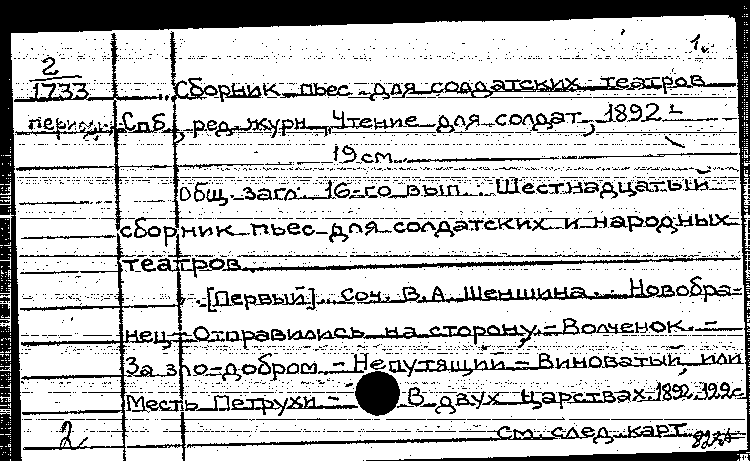 1.
2
1733
Сборник пьес для солдатских театров
период. Спб, ред. журн. „Чтение для солдат", 1892 -
19 см.
Общ. загл. 16-го вып.: Шестнадцатый
сборник пьес для солдатских и народных
театров.
[Первый]. Соч. В. А. Шеншина. Новобра-
нец. - Отправились на сторону. - Волченок. -
За зло-добром. - Непутящий - Виноватый, или
Месть Петрухи. - В двух царствах. 1892. 192 с.
2.
см. след. карт.